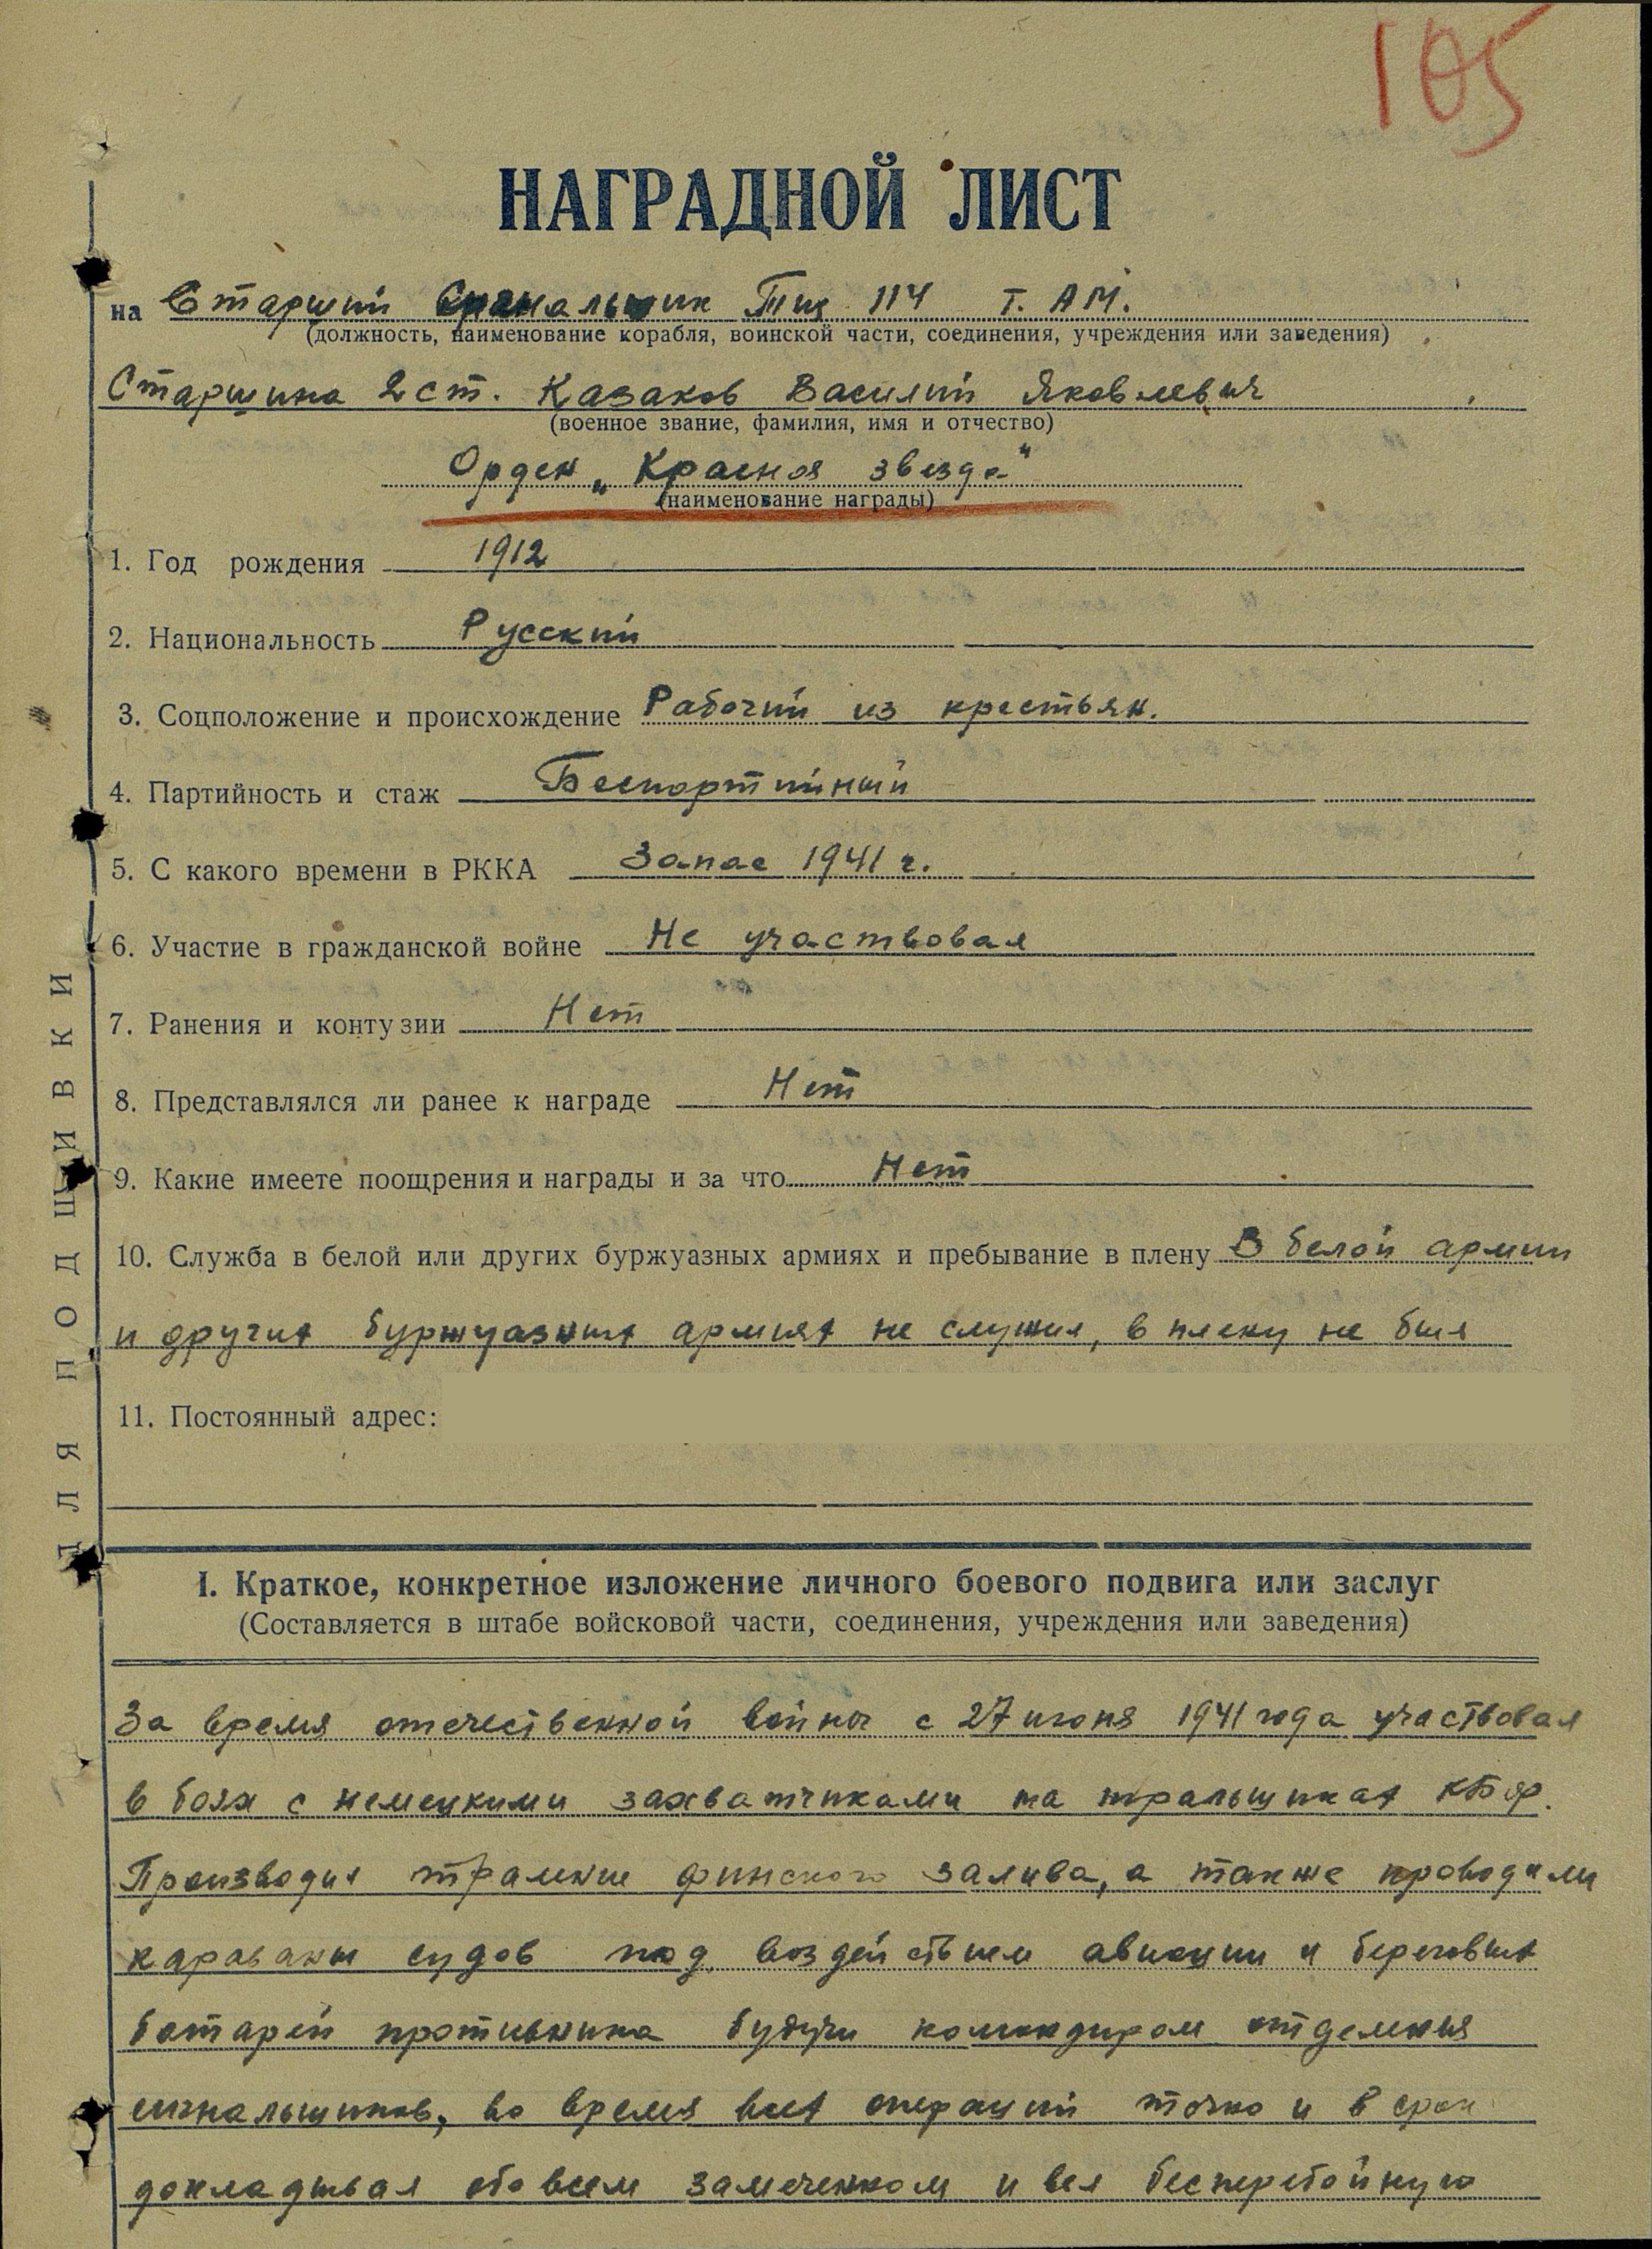 105
НАГРАДНОЙ ЛИСТ
на Старший Сигнальщик Тщ 114 Т. АМ.
(должность, наименование корабля, воинской части, соединения, учреждения или заведения)
Старшина 2 ст. Казаков Василий Яковлевич
(военное звание, фамилия, имя и отчество)
Орден „Красная звезда"
(наименование награды)
1. Год рождения 1912
2. Национальность Русский
3. Соцположение и происхождение Рабочий из крестьян.
4. Партийность и стаж Беспартийный
5. С какого времени в РККА Запас 1941 г.
6. Участие в гражданской войне Не участвовал
7. Ранения и контузии Нет
8. Представлялся ли ранее к награде Нет
9. Какие имеете поощрения и награды и за что Нет
10. Служба в белой или других буржуазных армиях и пребывание в плену В белой армии
и других буржуазных армиях не служил, в плену не был
11. Постоянный адрес:
ДЛЯ ПОДШИВКИ
I. Краткое, конкретное изложение личного боевого подвига или заслуг
(Составляется в штабе войсковой части, соединения, учреждения или заведения)
За время отечественной войны с 27 июня 1941 года участвовал
в боях с немецкими захватчиками на тральщиках КБФ.
Производил траление финского залива, а также проводили
караваны судов под воздействием авиации и береговых
батарей противника будучи командиром отделения
сигнальщиков, во время всех операций точно и в срок
докладывал обо всем замеченном и вел бесперебойную